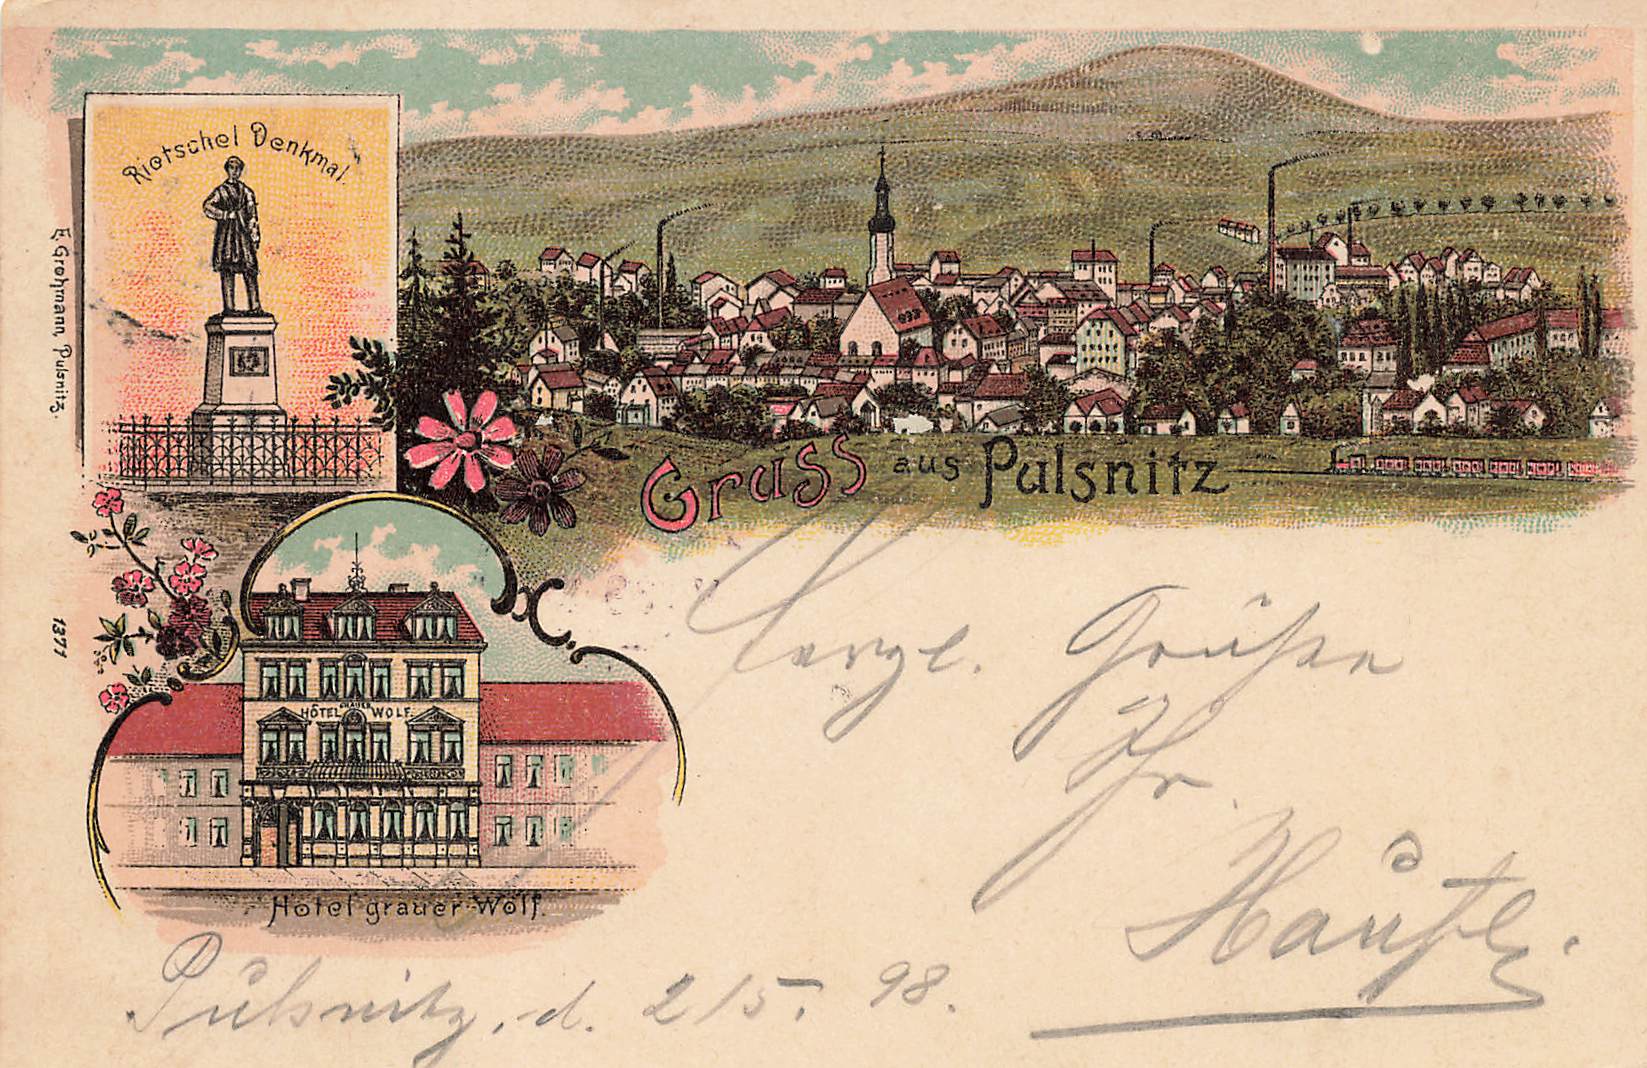 Rietschel Denkmal.
E. Grohmann, Pulsnitz.
Gruss aus Pulsnitz
1377
HÔTEL GRAUER WOLF.
Hotel grauer Wolf.
Herzl. Grüßen
Ihr
Pulsnitz, d. 2/5. 98.